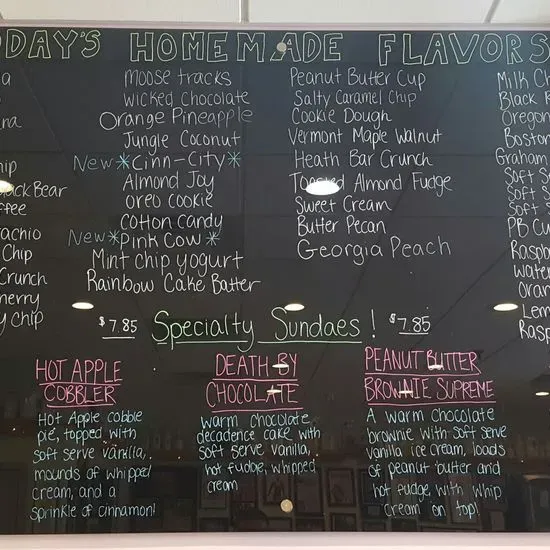 ODAY'S HOMEMADE FLAVORS
Black Bear
ffee
achio
Chip
Crunch
herry
y chip
Moose tracks
Wicked Chocolate
Orange Pineapple
Jungle Coconut
New *Cinn-City*
Almond Joy
Oreo cookie
Cotton candy
New *Pink Cow*
Mint chip yogurt
Rainbow Cake Batter
Peanut Butter Cup
Salty Caramel Chip
Cookie Dough
Vermont Maple Walnut
Heath Bar Crunch
Toasted Almond Fudge
Sweet Cream
Butter Pecan
Georgia Peach
Milk C
Black
Oregon
Boston
Graham
Soft S
Soft S
Soft S
PB Cu
Raspb
Water
Oran
Lem
Rasp
$7.85 Specialty Sundaes! $7.85
HOT APPLE
COBBLER
Hot Apple cobble
pie, topped with
soft serve vanilla,
mounds of whipped
cream, and a
sprinkle of cinnamon!
DEATH BY
CHOCOLATE
warm chocolate
decadence cake with
soft serve vanilla,
hot fudge, whipped
cream
PEANUT BUTTER
BROWNIE SUPREME
A warm chocolate
brownie with soft serve
vanilla ice cream, loads
of peanut butter and
hot fudge, with whip
cream on top!